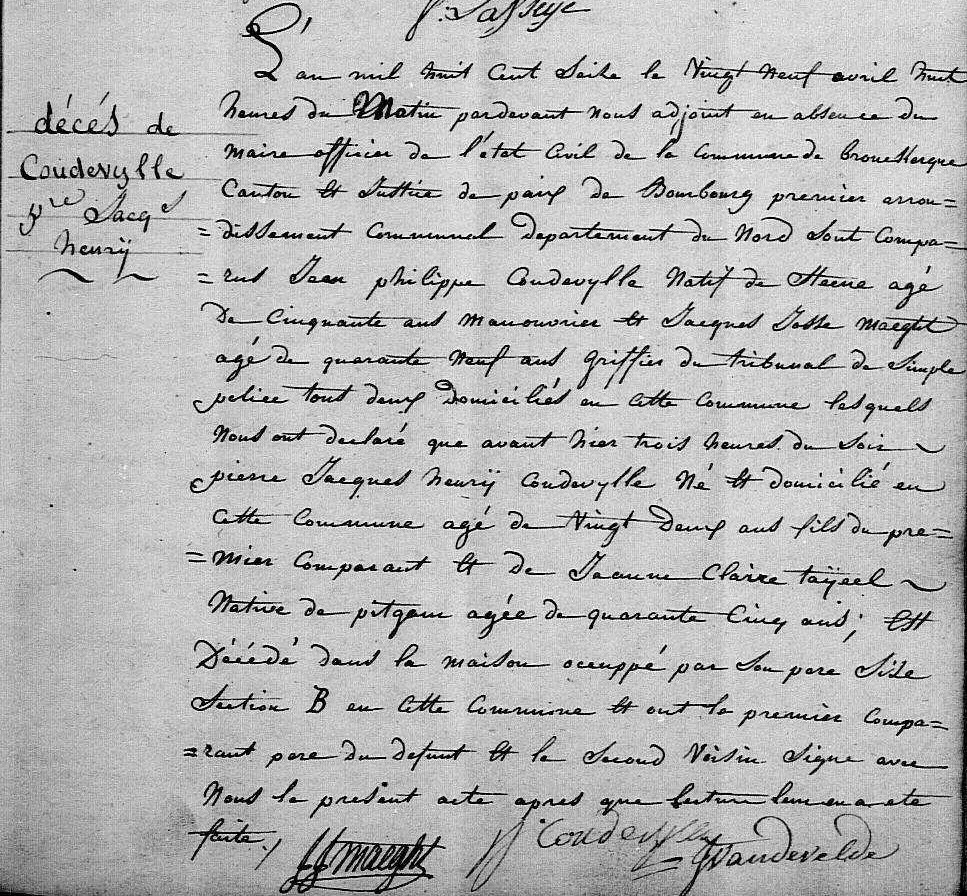 décés de
Coudevylle
pre Jacqs
henrÿ
L'an mil huit Cent Seize le Vingt neuf avril huit
heures du Matin pardevant nous adjoint en absence du
maire officier de l'état Civil de la Commune de brouckerque
Canton et Justice de paix de Bourbourg premier arron=
=dissement Communal departement du Nord Sont Compa=
=rus Jean philippe Coudevylle Natif de Steene agé
De Cinquante ans manouvrier et Jacques Josse maeght
agé de quarante Neuf ans Griffier du tribunal de Simple
police tous deux Domiciliés en Cette Commune lesquels
Nous ont declaré que avant hier trois heures du Soir
pierre Jacques henrÿ Coudevylle Né et domicilié en
Cette Commune agé de Vingt Deux ans fils du pre=
=mier Comparant et de Jacune Claire taÿeel
Native de pitgam agée de quarante Cinq ans; Est
Décédé dans la maison occuppé par Son pere Sise
Section B en Cette Commune et ont le premier Compa=
=rant pere du defunt et le Second Voisin Signe avec
Nous le présent acte apres que lecture leur en a ete
faite./
JJ maeght
Coudevylle
Vandevelde